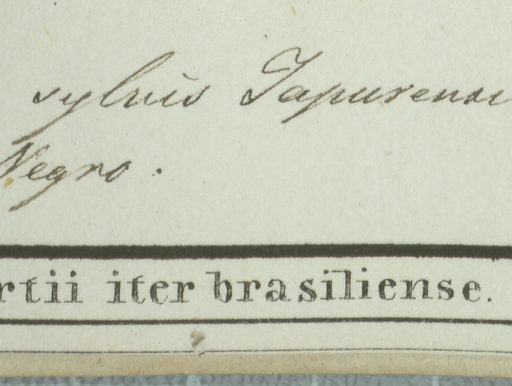 sylvis Japurensi
Negro.
rtii iter brasiliense.